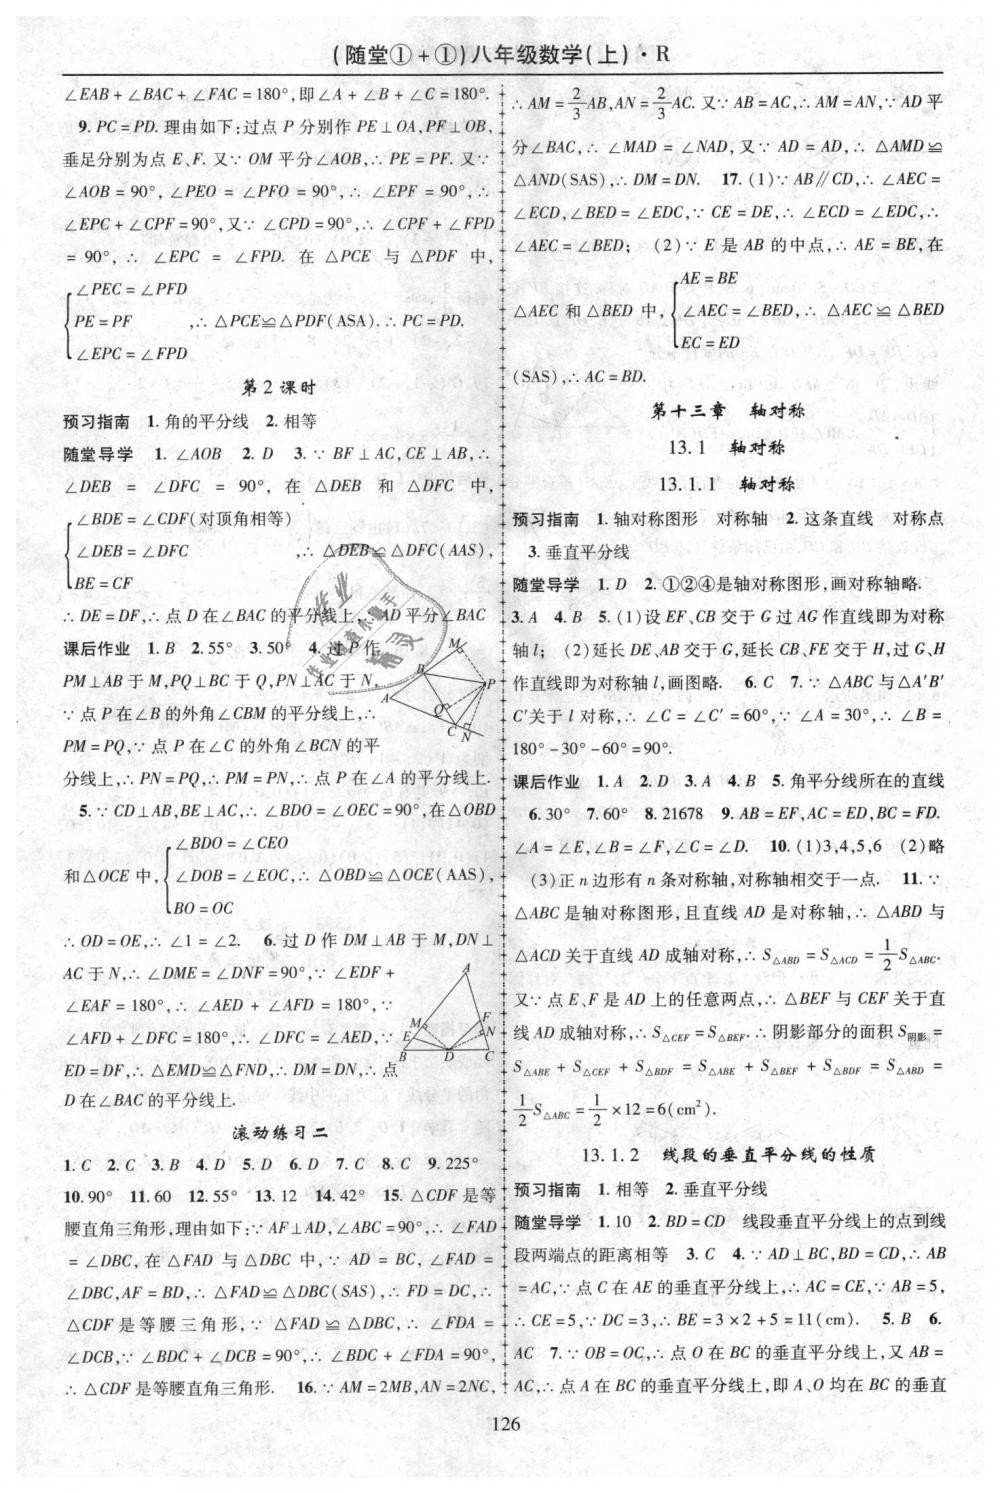 (随堂①+①)八年级数学(上)·R
∠EAB+∠BAC+∠FAC=180°,即∠A+∠B+∠C=180°.
9. PC=PD. 理由如下:过点 P 分别作 PE⊥OA,PF⊥OB,
垂足分别为点 E、F. 又∵ OM 平分∠AOB,∴ PE=PF. 又∵
∠AOB=90°,∠PEO=∠PFO=90°,∴ ∠EPF=90°,∴
∠EPC+∠CPF=90°,又∵ ∠CPD=90°,∴ ∠CPF+∠FPD
=90°,∴ ∠EPC=∠FPD. 在 △PCE 与 △PDF 中,
∠PEC=∠PFD
PE=PF ,∴ △PCE≌△PDF(ASA).∴ PC=PD.
∠EPC=∠FPD
第 2 课时
预习指南 1. 角的平分线 2. 相等
随堂导学 1. ∠AOB 2. D 3. ∵ BF⊥AC,CE⊥AB,∴
∠DEB=∠DFC=90°,在 △DEB 和 △DFC 中,
∠BDE=∠CDF(对顶角相等)
∠DEB=∠DFC ,∴ △DEB≌△DFC(AAS),
BE=CF
∴ DE=DF,∴ 点 D 在∠BAC 的平分线上,∴ AD 平分∠BAC
课后作业 1. B 2. 55° 3. 50° 4. 过 P 作
PM⊥AB 于 M,PQ⊥BC 于 Q,PN⊥AC 于 N,
∵ 点 P 在∠B 的外角∠CBM 的平分线上,∴
PM=PQ,∵ 点 P 在∠C 的外角∠BCN 的平
分线上,∴ PN=PQ,∴ PM=PN,∴ 点 P 在∠A 的平分线上.
M B P A Q C N
5. ∵ CD⊥AB,BE⊥AC,∴ ∠BDO=∠OEC=90°,在△OBD
∠BDO=∠CEO
和△OCE 中, ∠DOB=∠EOC,∴ △OBD≌△OCE(AAS),
BO=OC
∴ OD=OE,∴ ∠1=∠2. 6. 过 D 作 DM⊥AB 于 M,DN⊥
AC 于 N,∴ ∠DME=∠DNF=90°,∵ ∠EDF+
∠EAF=180°,∴ ∠AED+∠AFD=180°,∵
∠AFD+∠DFC=180°,∴ ∠DFC=∠AED,∵
ED=DF,∴ △EMD≌△FND,∴ DM=DN,∴ 点
D 在∠BAC 的平分线上.
A M F E N B D C
滚动练习二
1. C 2. C 3. B 4. D 5. D 6. D 7. C 8. C 9. 225°
10. 90° 11. 60 12. 55° 13. 12 14. 42° 15. △CDF 是等
腰直角三角形,理由如下:∵ AF⊥AD,∠ABC=90°,∴ ∠FAD
=∠DBC,在 △FAD 与 △DBC 中,∵ AD=BC,∠FAD=
∠DBC,AF=BD,∴ △FAD≌△DBC(SAS),∴ FD=DC,∴
△CDF 是等腰三角形,∵ △FAD≌△DBC,∴ ∠FDA=
∠DCB,∵ ∠BDC+∠DCB=90°,∴ ∠BDC+∠FDA=90°,
∴ △CDF 是等腰直角三角形. 16. ∵ AM=2MB,AN=2NC,
∴ AM=2/3AB,AN=2/3AC. 又∵ AB=AC,∴ AM=AN,∵ AD 平
分∠BAC,∴ ∠MAD=∠NAD,又∵ AD=AD,∴ △AMD≌
△AND(SAS),∴ DM=DN. 17. (1)∵ AB∥CD,∴ ∠AEC=
∠ECD,∠BED=∠EDC,∵ CE=DE,∴ ∠ECD=∠EDC,∴
∠AEC=∠BED; (2)∵ E 是 AB 的中点,∴ AE=BE,在
AE=BE
△AEC 和△BED 中, ∠AEC=∠BED,∴ △AEC≌△BED
EC=ED
(SAS),∴ AC=BD.
第十三章 轴对称
13.1 轴对称
13.1.1 轴对称
预习指南 1. 轴对称图形 对称轴 2. 这条直线 对称点
3. 垂直平分线
随堂导学 1. D 2. ①②④是轴对称图形,画对称轴略.
3. A 4. B 5. (1)设 EF、CB 交于 G 过 AG 作直线即为对称
轴 l; (2)延长 DE、AB 交于 G,延长 CB、FE 交于 H,过 G、H
作直线即为对称轴 l,画图略. 6. C 7. ∵ △ABC 与△A′B′
C′关于 l 对称,∴ ∠C=∠C′=60°,∵ ∠A=30°,∴ ∠B=
180°-30°-60°=90°.
课后作业 1. A 2. D 3. A 4. B 5. 角平分线所在的直线
6. 30° 7. 60° 8. 21678 9. AB=EF,AC=ED,BC=FD.
∠A=∠E,∠B=∠F,∠C=∠D. 10. (1)3,4,5,6 (2)略
(3)正 n 边形有 n 条对称轴,对称轴相交于一点. 11. ∵
△ABC 是轴对称图形,且直线 AD 是对称轴,∴ △ABD 与
△ACD 关于直线 AD 成轴对称,∴ S△ABD=S△ACD=1/2S△ABC.
又∵ 点 E、F 是 AD 上的任意两点,∴ △BEF 与 CEF 关于直
线 AD 成轴对称,∴ S△CEF=S△BEF.∴ 阴影部分的面积 S阴影=
S△ABE+S△CEF+S△BDF=S△ABE+S△BEF+S△BDF=S△ABD=
1/2S△ABC=1/2×12=6(cm²).
13.1.2 线段的垂直平分线的性质
预习指南 1. 相等 2. 垂直平分线
随堂导学 1. 10 2. BD=CD 线段垂直平分线上的点到线
段两端点的距离相等 3. C 4. ∵ AD⊥BC,BD=CD,∴ AB
=AC,∵ 点 C 在 AE 的垂直平分线上,∴ AC=CE,∵ AB=5,
∴ CE=5,∵ DC=3,∴ BE=3×2+5=11(cm). 5. B 6.
AC 7. ∵ OB=OC,∴ 点 O 在 BC 的垂直平分线上,又 AB=
AC,∴ 点 A 在 BC 的垂直平分线上,即 A、O 均在 BC 的垂直
126